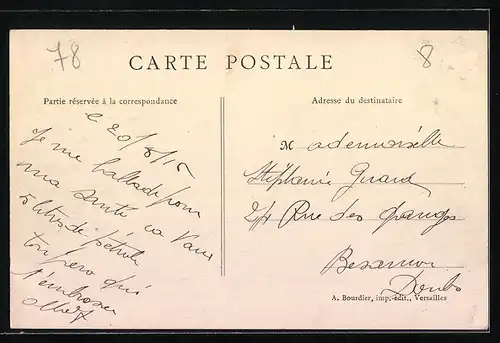 78
8
CARTE POSTALE
Partie réservée à la correspondance
Adresse du destinataire
Mademoiselle
Stéphanie Girard
24 Rue des Granges
Besançon
Doubs
le 20/8/15
Je me ballade pour
ma santé
5 litres de pétrole
ton pero qui
t'embrasse
A. Bourdier, imp.-édit., Versailles